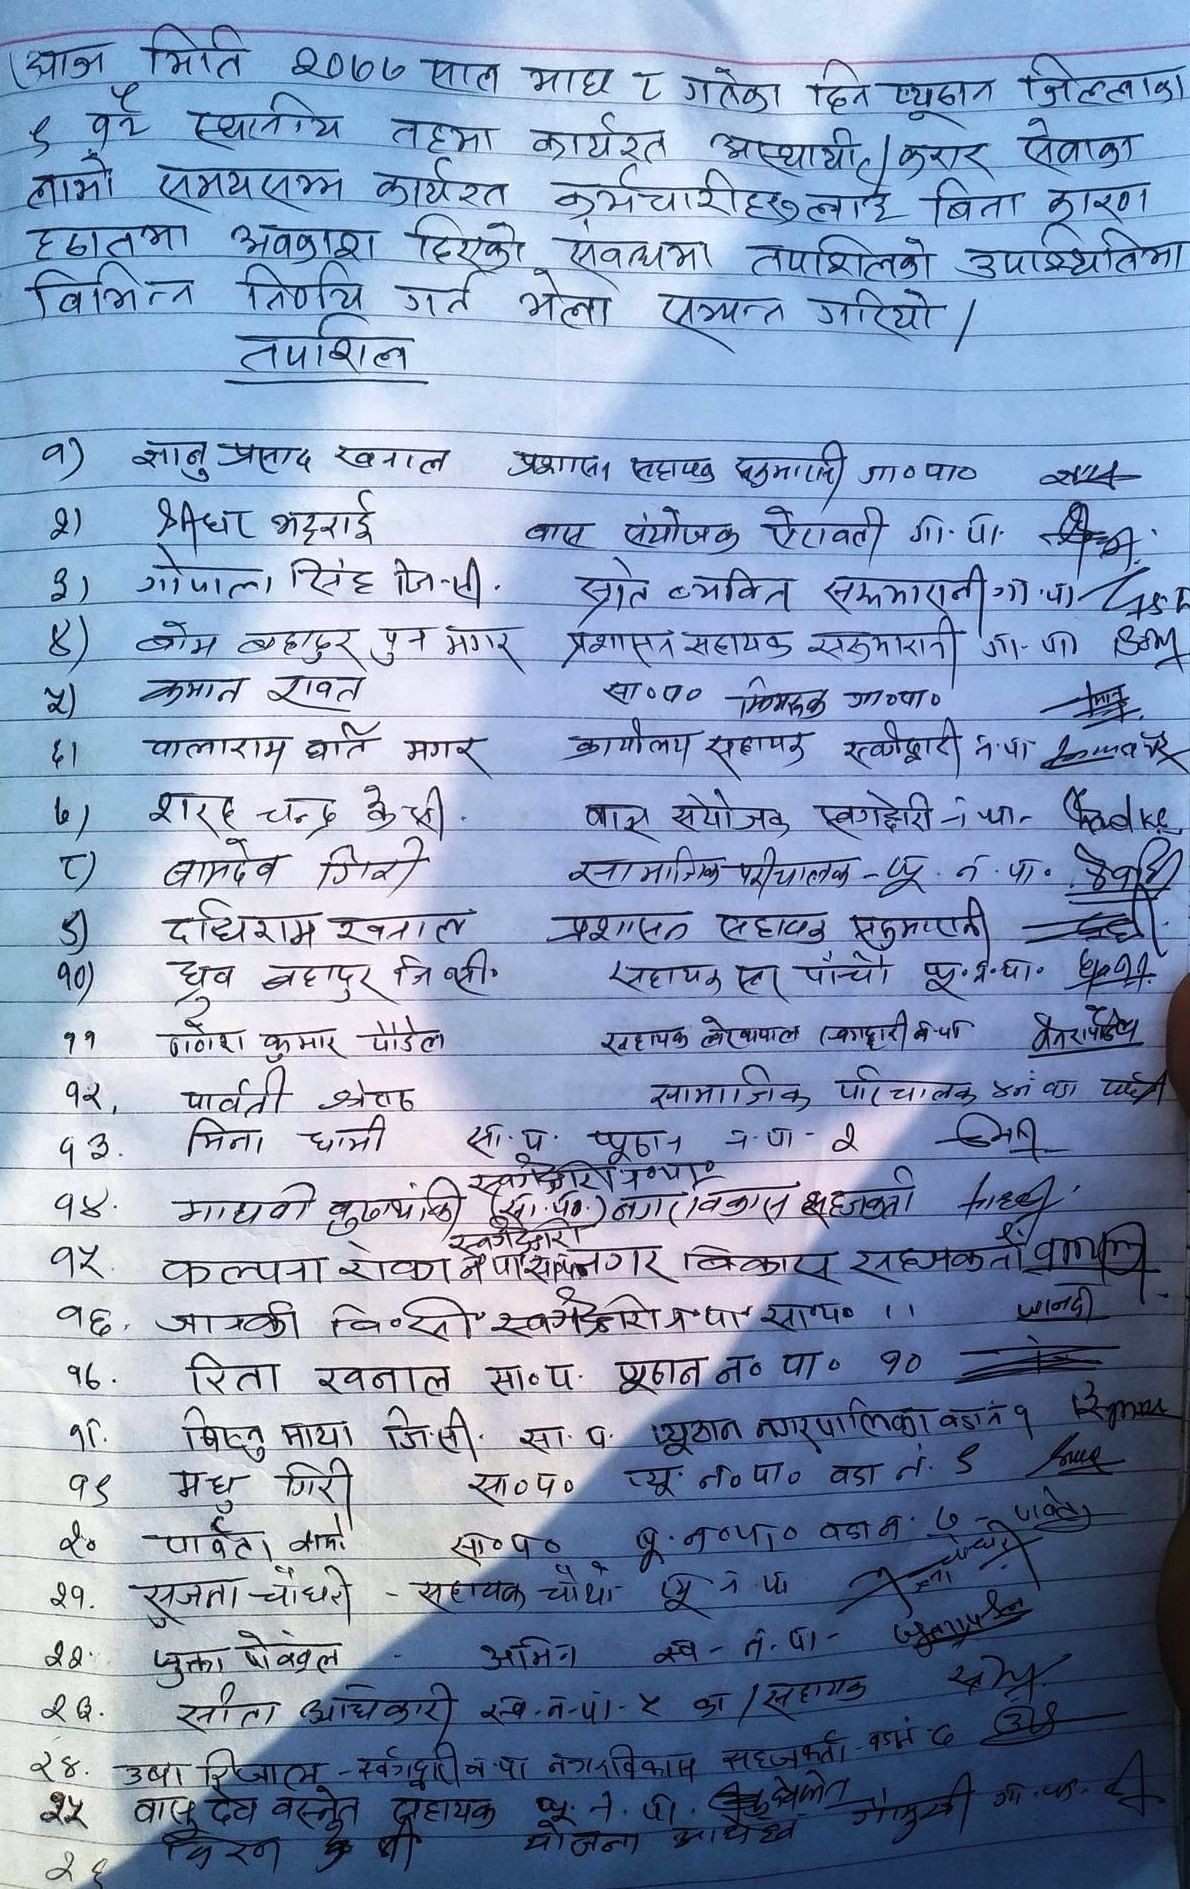 आज मिति २०७७ साल माघ ८ गतेका दिन प्यूठान जिल्लाका
९ वटै स्थानीय तहमा कार्यरत अस्थायी/करार सेवाका
लामो समयसम्म कार्यरत कर्मचारीहरुलाई बिना कारण
हठातमा अवकाश दिएको संवन्धमा तपशिलको उपस्थितिमा
विभिन्न निर्णय गर्न भेला सम्पन्न गरियो।
तपशिल
१) ज्ञानु प्रसाद खनाल प्रशासन सहायक सरुमारानी गा०पा०
२) श्रीधर भट्टराई वास संयोजक ऐरावती गा.पा.
३) गोपाल सिंह जि.सी. स्रोत व्यक्ति सरुमारानी गा.पा
४) बोम बहादुर पुन मगर प्रशासन सहायक सरुमारानी गा.पा
५) कमान रावत सा०प० झिमरुक गा०पा०
६। पालाराम घर्ति मगर कार्यालय सहायक स्वर्गद्वारी न.पा
७) शरद चन्द्र के.सी. वास संयोजक स्वर्गद्वारी न.पा- Khadka
८) बामदेव गिरी सामाजिक परिचालक - प्यू. न. पा.
९) दधिराम खनाल प्रशासन सहायक सरुमारानी
१०) ध्रुव बहादुर जि.सी. सहायक स्तर पाँचौ प्यू.न.पा.
११ गणेश कुमार पौडेल सहायक लेखापाल स्वर्गद्वारी न.पा
१२. पार्वती श्रेष्ठ सामाजिक परिचालक ४नं वडा
१३. मिना घामी सा.प. प्यूठान न.पा-२
१४. माधवी स्वर्गद्वारी न०पा० (सा.प०) नगर विकास सहजकर्ता
१५. कल्पना रोका स्वर्गद्वारी न पा नगर विकास सहजकर्ता
१६. जानकी वि०सी स्वर्गद्वारी न पा सा०प० ११ जानकी
१७. रिता खनाल सा०प. प्यूठान न० पा० १०
१८. बिष्नु माया जि.सी. सा.प. प्यूठान नगरपालिका वडा नं १
१९ मधु गिरी सा०प० प्यू. न०पा० वडा नं. ९
२० पार्वती सा०प० प्यू.न०पा० वडा न. ७ - पार्वती
२१. सुजता चौधरी - सहायक चौथो प्यू न पा
२२. पोख्रेल - अमिन स्व - न.पा-
२३. सीता अधिकारी स्व.न.पा-५ का/सहायक
२४. उषा रिजाल - स्वर्गद्वारी न पा नगरविकास सहजकर्ता - वडा नं ७
२५ वासुदेव वस्नेत सहायक प्यू.न.पा.
२६ किरन के सी योजना गौमुखी गा.पा.